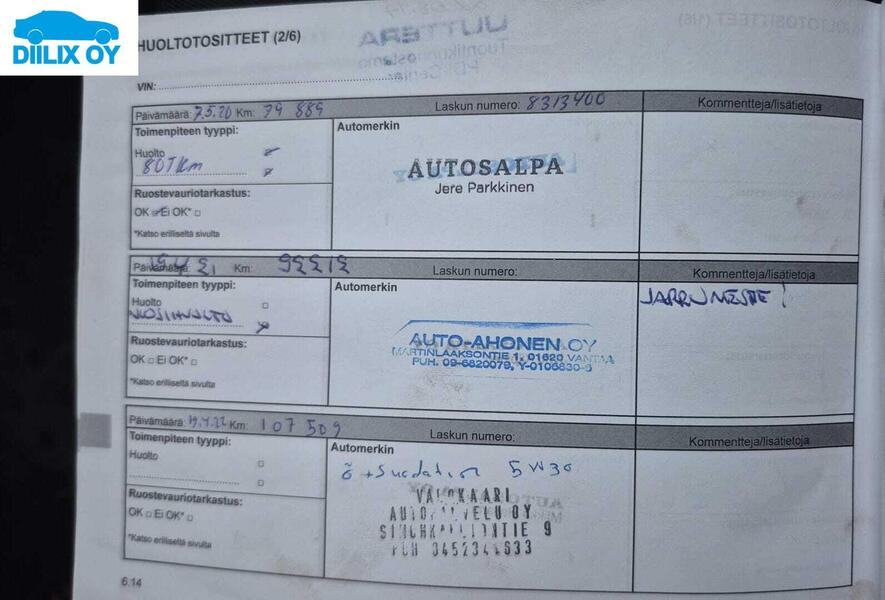 DIILIX OY
HUOLTOTOSITTEET (2/6)
UUTTERA
VIN:
Päivämäärä: 7.5.20 Km: 79 889 Laskun numero: 8313400 Kommentteja/lisätietoja
Toimenpiteen tyyppi: Automerkin
Huolto
80TKm
AUTOSALPA
Jere Parkkinen
Ruostevauriotarkastus:
OK Ei OK*
*Katso erilliseltä sivulta
Päivämäärä: Km: 92212 Laskun numero: Kommentteja/lisätietoja
Toimenpiteen tyyppi: Automerkin
Huolto
JARRUNESTE!
VUOSIHUOLTO
AUTO-AHONEN OY
MARTINLAAKSONTIE 1, 01620 VANTAA
PUH. 09-6820079, Y-0106830-
Ruostevauriotarkastus:
OK Ei OK*
*Katso erilliseltä sivulta
Päivämäärä: 19.4.22 Km: 107 509 Laskun numero: Kommentteja/lisätietoja
Toimenpiteen tyyppi: Automerkin
Huolto
ö + Suodatin 5W30
OY
9
Ruostevauriotarkastus:
OK Ei OK*
*Katso erilliseltä sivulta
6.14